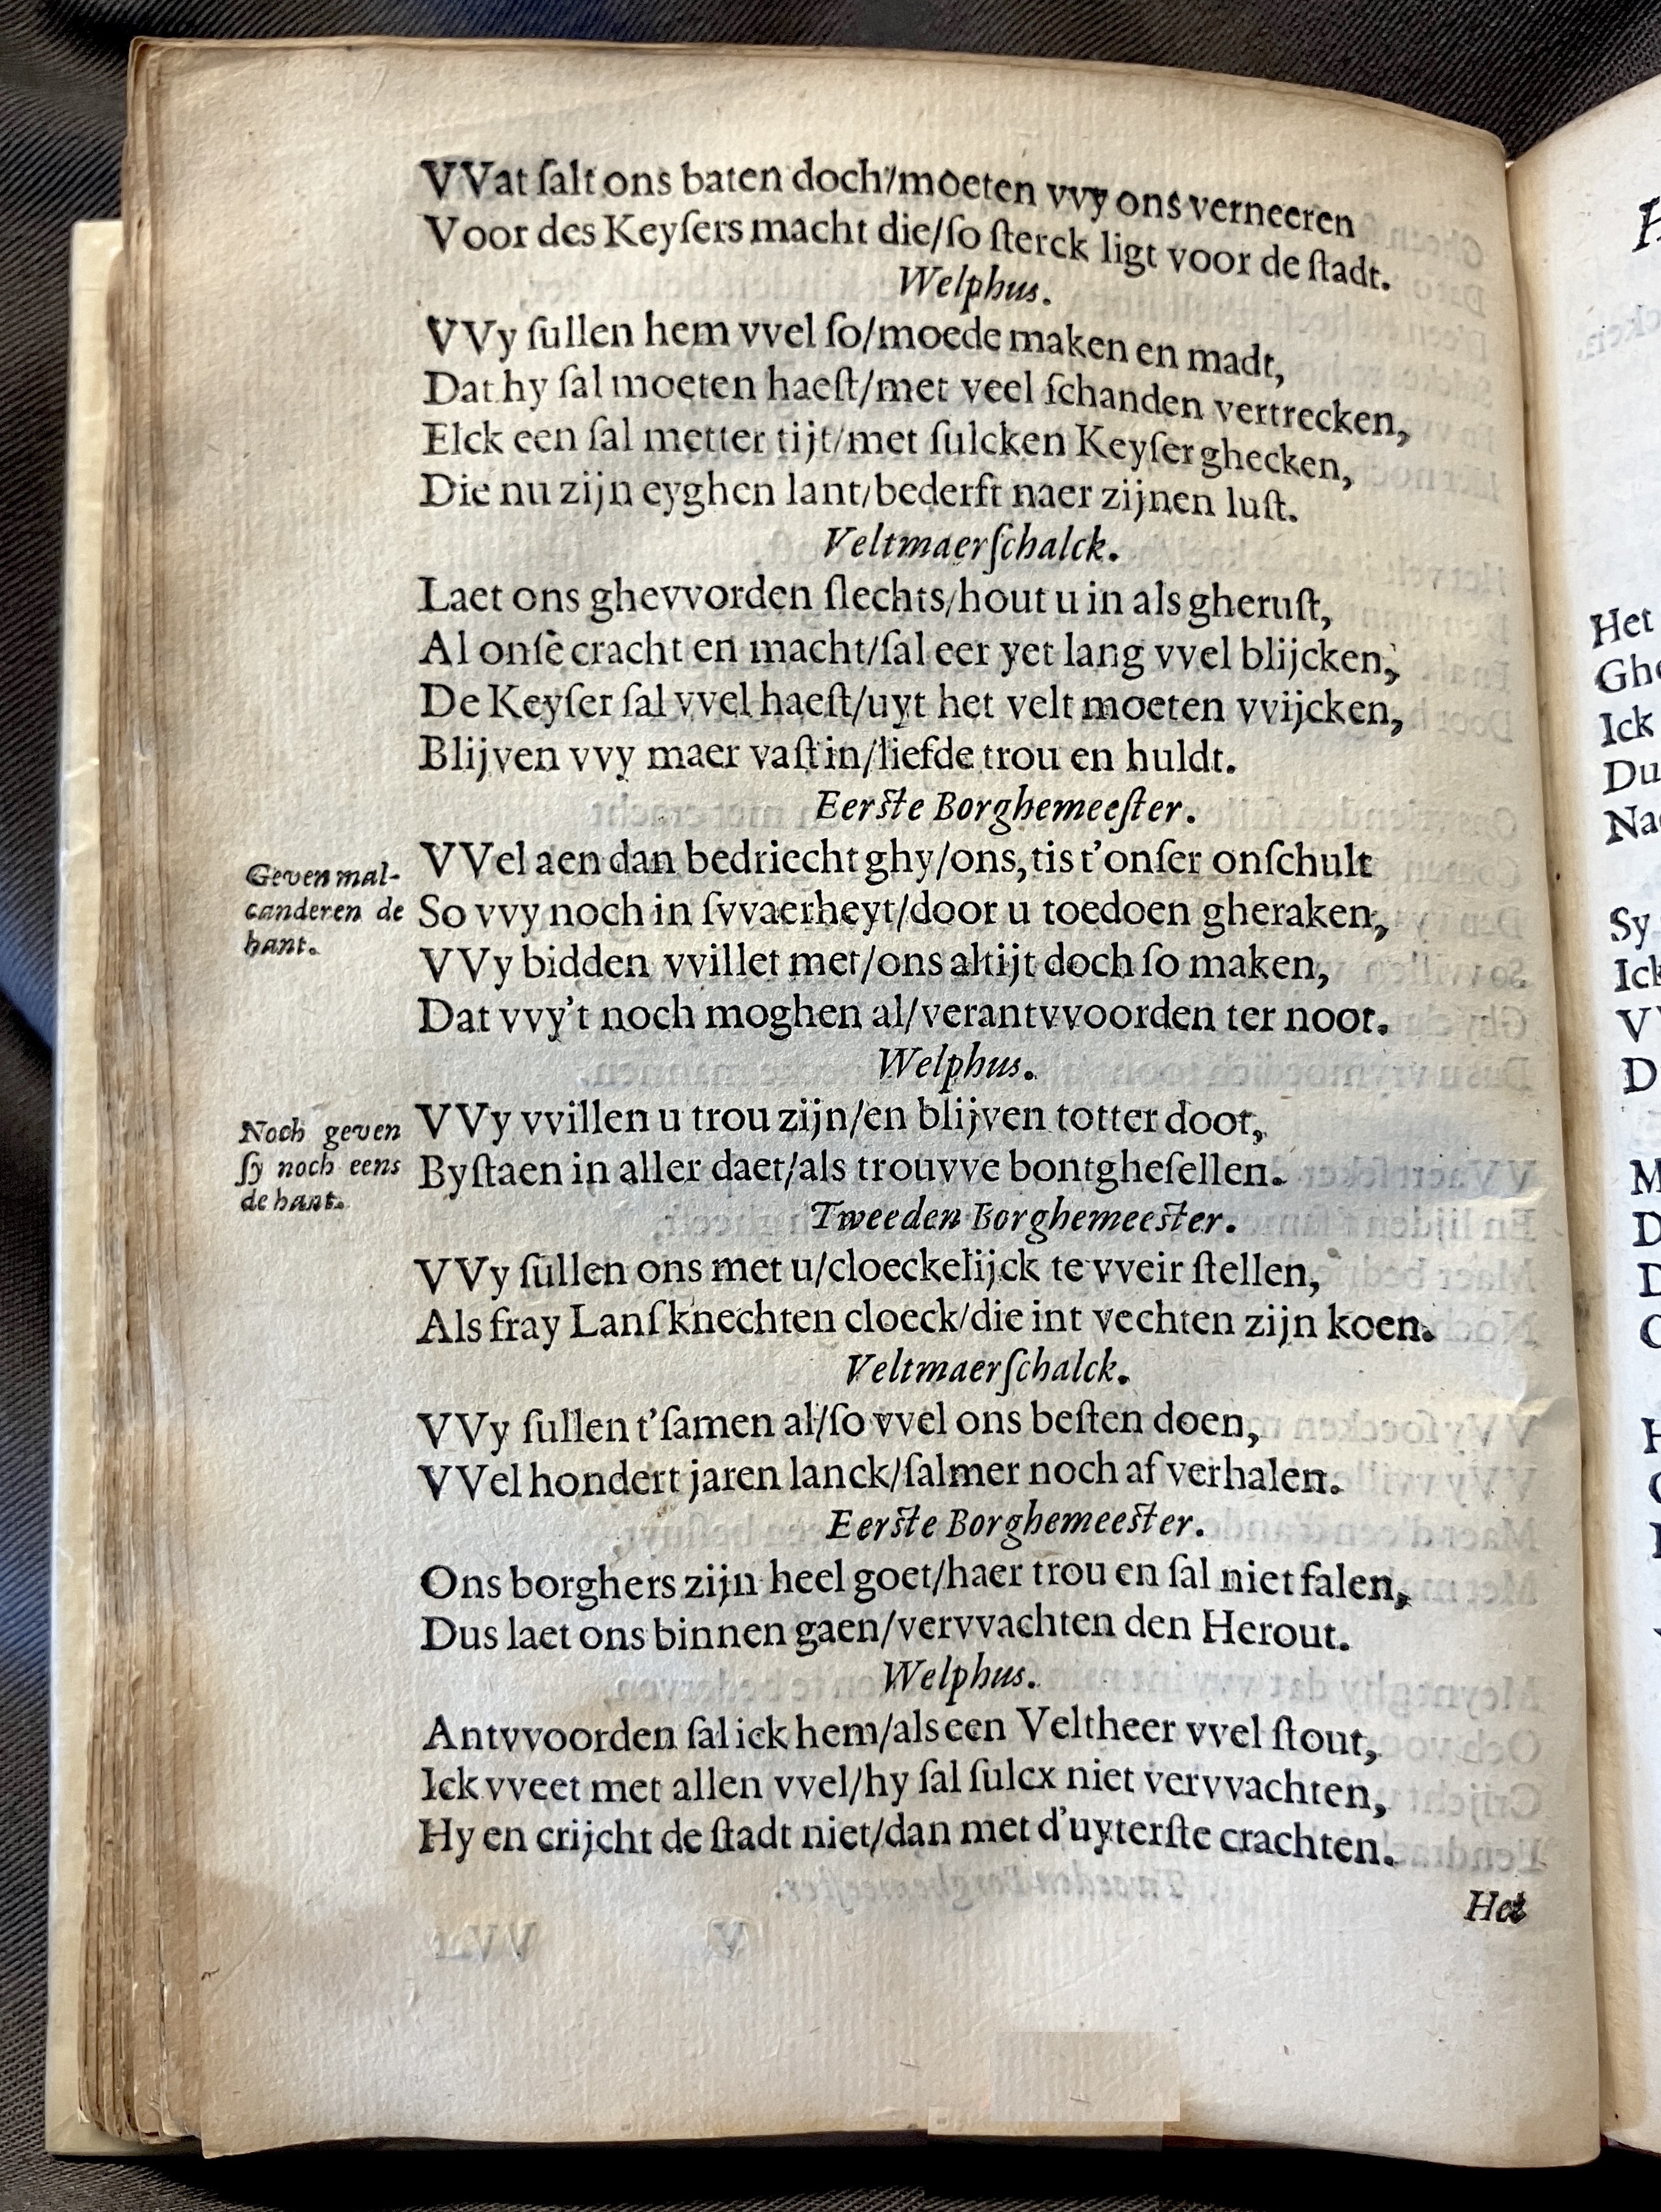 VVat ſalt ons baten doch/moeten vvy ons verneeren
Voor des Keyſers macht die/ſo ſterck ligt voor de ſtadt.
Welphus.
VVy ſullen hem vvel ſo/moede maken en madt,
Dat hy ſal moeten haeſt/met veel ſchanden vertrecken,
Elck een ſal metter tijt/met ſulcken Keyſer ghecken,
Die nu zijn eyghen lant/bederft naer zijnen luſt.
Veltmaerſchalck.
Laet ons ghevvorden ſlechts/hout u in als gheruſt,
Al onſe cracht en macht/ſal eer yet lang vvel blijcken,
De Keyſer ſal vvel haeſt/uyt het velt moeten vvijcken,
Blijven vvy maer vaſt in/liefde trou en huldt.
Eerſte Borghemeeſter.
VVel aen dan bedriecht ghy/ons, tis t'onſer onſchult
Geven mal-
canderen de
hant.
So vvy noch in ſvvaerheyt/door u toedoen gheraken,
VVy bidden vvillet met/ons altijt doch ſo maken,
Dat vvy't noch moghen al/verantvvoorden ter noot.
Welphus.
VVy vvillen u trou zijn/en blijven totter doot,
Noch geven
ſy noch eens
de hant.
Byſtaen in aller daet/als trouvve bontgheſellen.
Tweeden Borghemeeſter.
VVy ſullen ons met u/cloeckelijck te vveir ſtellen,
Als fray Lanſknechten cloeck/die int vechten zijn koen.
Veltmaerſchalck.
VVy ſullen t'ſamen al/ſo vvel ons beſten doen,
VVel hondert jaren lanck/ſalmer noch af verhalen.
Eerſte Borghemeeſter.
Ons borghers zijn heel goet/haer trou en ſal niet falen,
Dus laet ons binnen gaen/vervvachten den Herout.
Welphus.
Antvvoorden ſal ick hem/als een Veltheer vvel ſtout,
Ick vveet met allen vvel/hy ſal ſulcx niet vervvachten,
Hy en crijcht de ſtadt niet/dan met d'uyterſte crachten.
Het
Het
Ick
Sy